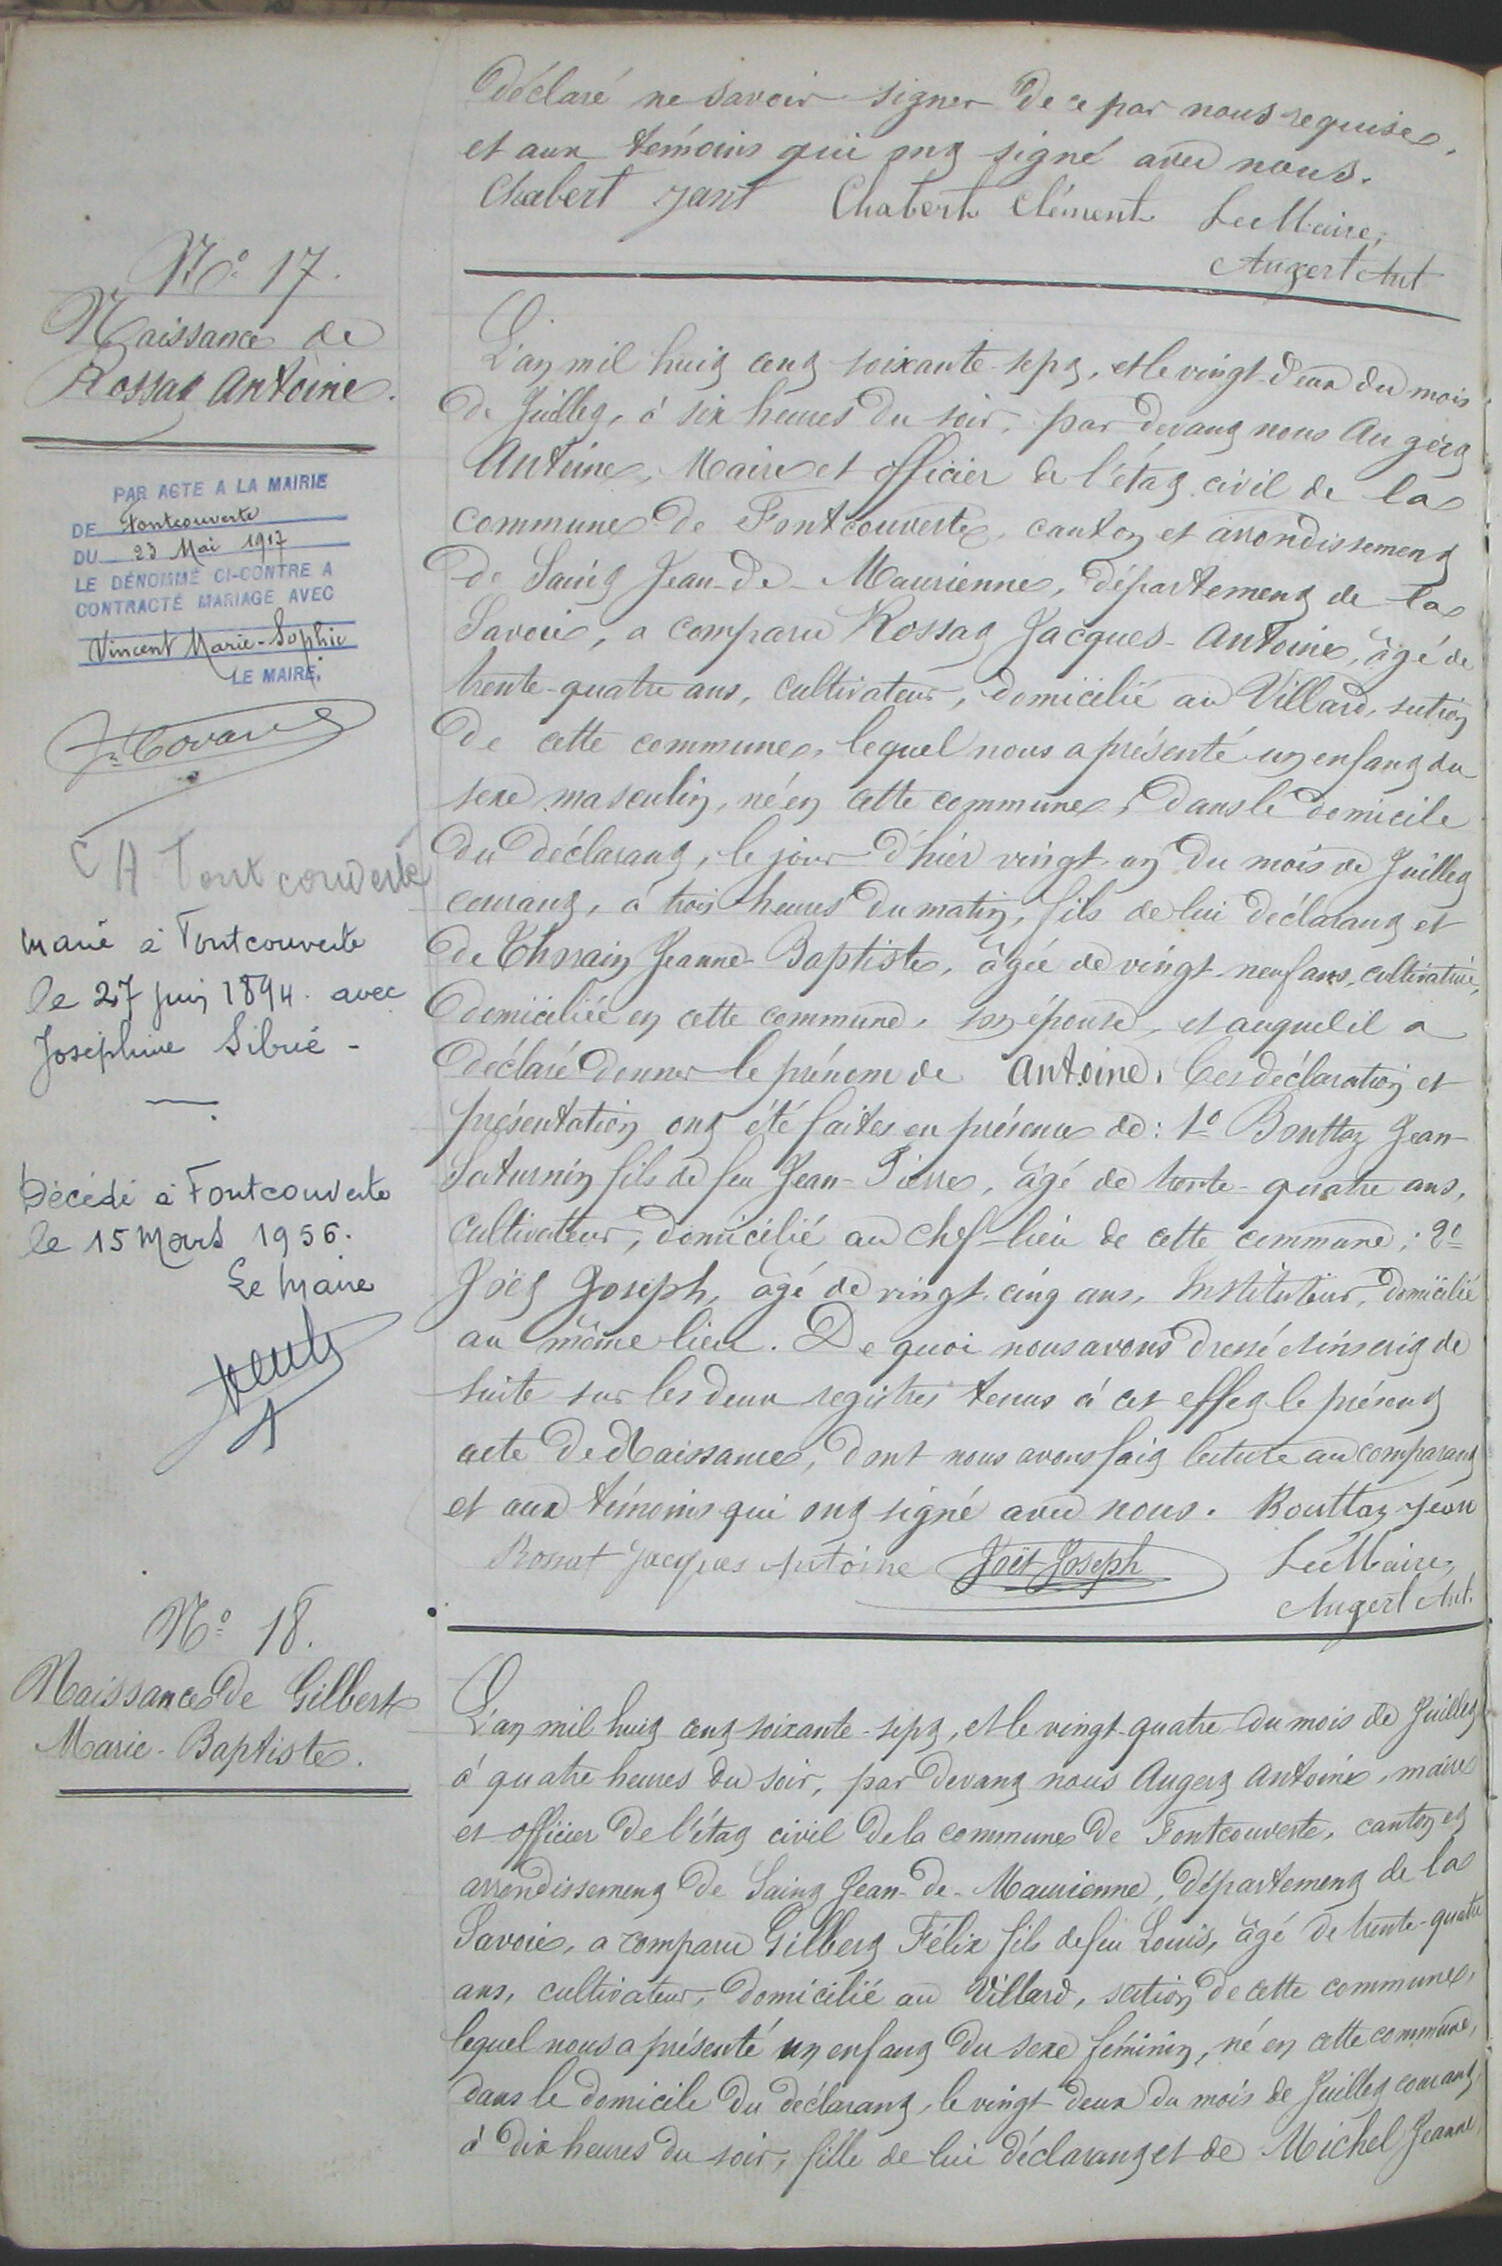 déclaré ne savoir signer de ce par nous requise,
et aux témoins qui ont signé avec nous.
Chabert Clément Le Maire,
Augert Ant
N° 17.
Naissance de
Rossat Antoine.
PAR ACTE A LA MAIRIE
DE Fontcouverte
DU 23 Mai 1917
LE DÉNOMMÉ CI-CONTRE A
CONTRACTÉ MARIAGE AVEC
Vincent Marie-Sophie
LE MAIRE,
A Fontcouverte
Marié à Fontcouverte
le 27 juin 1894. avec
Joséphine Sibué -
Décédé à Fontcouverte
le 15 Mars 1956.
Le Maire
L'an mil huit cent soixante-sept, et le vingt-deux du mois
de Juillet, à six heures du soir, par devant nous Augert
Antoine, Maire et officier de l'état civil de la
commune de Fontcouverte, canton et arrondissement
de Saint Jean-de-Maurienne, département de la
Savoie, a comparu Rossat Jacques-Antoine, âgé de
trente-quatre ans, cultivateur, domicilié au Villard, section
de cette commune, lequel nous a présenté un enfant du
sexe masculin, né en cette commune, dans le domicile
du déclarant, le jour d'hier vingt-un du mois de Juillet
courant, à trois heures du matin, fils de lui déclarant et
de Jeanne-Baptiste, âgée de vingt-neuf ans, cultivatrice,
domiciliée en cette commune, son épouse, et auquel il a
déclaré donner le prénom de Antoine. Ces déclaration et
présentation ont été faites en présence de: 1° Bouttaz Jean-
Saturnin fils de feu Jean-Pierre, âgé de trente-quatre ans,
cultivateur, domicilié au chef-lieu de cette commune; 2°
Joët Joseph, âgé de vingt-cinq ans, Instituteur, domicilié
au même lieu. De quoi nous avons dressé et inscrit de
suite sur les deux registres tenus à cet effet le présent
acte de Naissance, dont nous avons fait lecture au comparant
et aux témoins qui ont signé avec nous. Bouttaz Jean
Rossat Jacques Antoine Joët Joseph Le Maire,
Augert Ant.
N° 18.
Naissance de Gilbert
Marie-Baptiste.
L'an mil huit cent soixante-sept, et le vingt-quatre du mois de Juillet
à quatre heures du soir, par devant nous Augert Antoine, maire
et officier de l'état civil de la commune de Fontcouverte, canton et
arrondissement de Saint Jean-de-Maurienne, département de la
Savoie, a comparu Gilbert Félix fils de feu Louis, âgé de trente-quatre
ans, cultivateur, domicilié au Villard, section de cette commune,
lequel nous a présenté un enfant du sexe féminin, né en cette commune,
dans le domicile du déclarant, le vingt-deux du mois de Juillet courant,
à dix heures du soir, fille de lui déclarant et de Michel Jeanne,